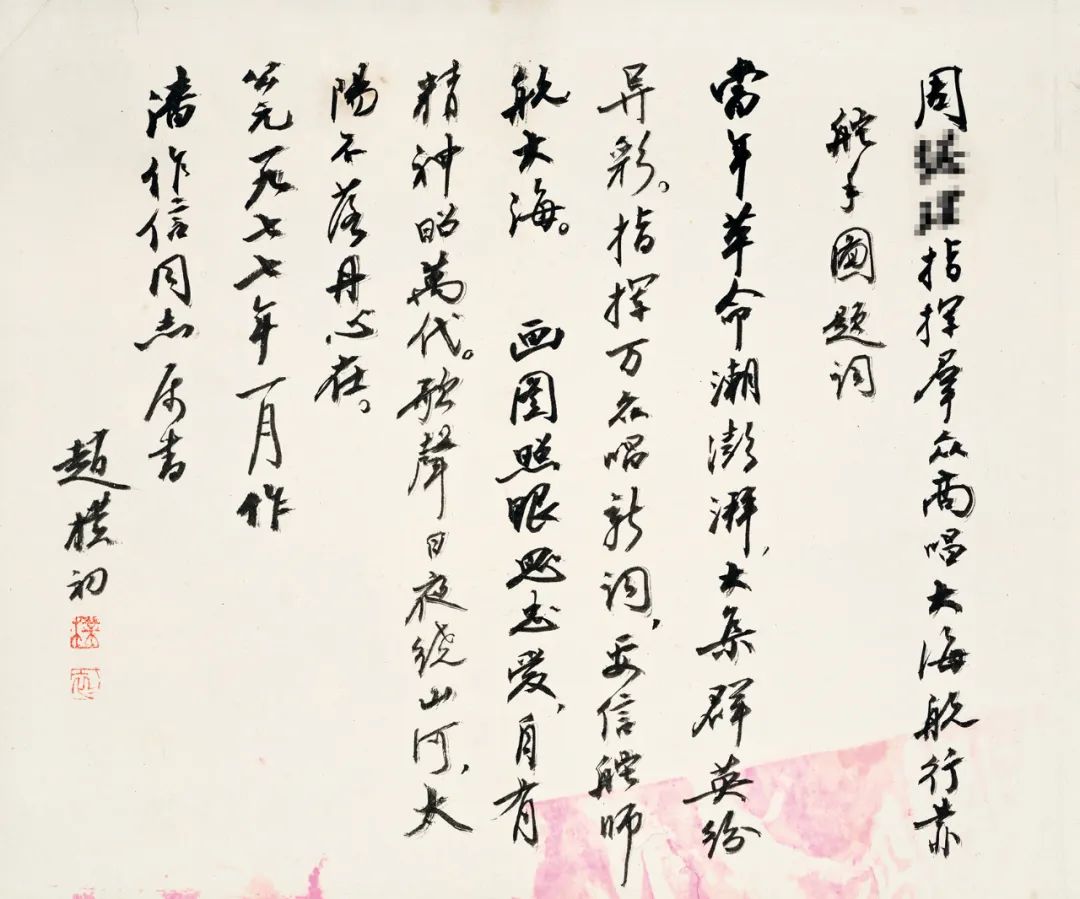 周指挥群众高唱大海航行靠
舵手图题词
当年革命潮澎湃，大集群英纷
异彩。指挥万众唱新词，要信舵师
航大海。 画图照眼思忠爱，自有
精神昭萬代。歌聲日夜绕山河，太
陽不落丹心在。
公元一九七七年一月作
潘作信同志属书
趙樸初
樸初